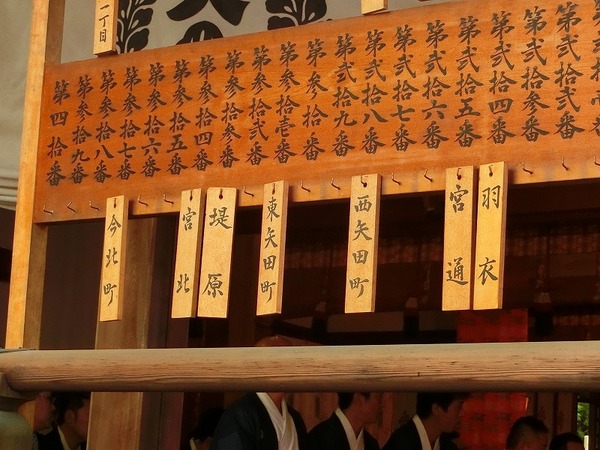 第弐拾弐番
第弐拾参番
第弐拾四番
第弐拾五番
第弐拾六番
第弐拾七番
第弐拾八番
第弐拾九番
第参拾番
第参拾壱番
第参拾弐番
第参拾参番
第参拾四番
第参拾五番
第参拾六番
第参拾七番
第参拾八番
第参拾九番
第四拾番
一丁目
羽衣
宮通
西矢田町
東矢田町
堤原
宮北
今北町